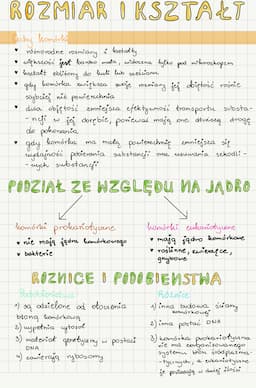 ROZMIAR I KSZTAŁT
cechy komórki
• różnorodne rozmiary i kształty
• większość jest bardzo mała, widoczna tylko pod mikroskopem
• kształt zbliżony do kuli lub sześcianu
• gdy komórka zwiększa swoje rozmiary jej objętość rośnie
szybciej niż powierzchnia
• duża objętość zmniejsza efektywność transportu substa-
-ncji w jej obrębie, ponieważ mają one dłuższą drogę
do pokonania
• gdy komórka ma małą powierzchnię zmniejsza się
wydajność pobierania substancji oraz usuwania szkodli-
-wych substancji
PODZIAŁ ZE WZGLĘDU NA JĄDRO
komórki prokariotyczne
• nie mają jądra komórkowego
• bakterie
komórki eukariotyczne
• mają jądro komórkowe
• roślinne, zwierzęce,
grzybowe
RÓŻNICE I PODOBIEŃSTWA
Podobieństwa:
1) są oddzielone od otoczenia
błoną komórkową
2) wypełnia cytozol
3) materiał genetyczny w postaci
DNA
4) zawierają rybosomy
Różnice:
1) inna budowa ściany
komórkowej
2) inna postać DNA
3) komórka prokariotyczna
nie ma zorganizowanego
systemu błon śródplazma-
-tycznych, a eukariotyczne
je posiadają w dużej ilości